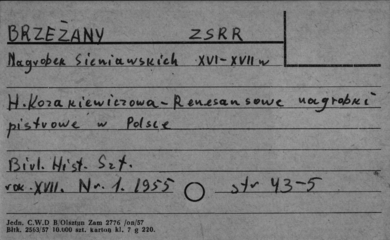 BRZEŻANY ZSRR
Nagrobek Sieniawskich XVI-XVII w
H. Kozakiewiczowa - Renesansowe nagrobki
piętrowe w Polsce
Biul. Hist. Szt.
rok. XVII. Nr. 1. 1955 str 43-5
Jedn. C.W.D B/Olsztyn Zam 2776 /on/57
Błtk. 2563/57 10.000 szt. karton kl. 7 g 220.